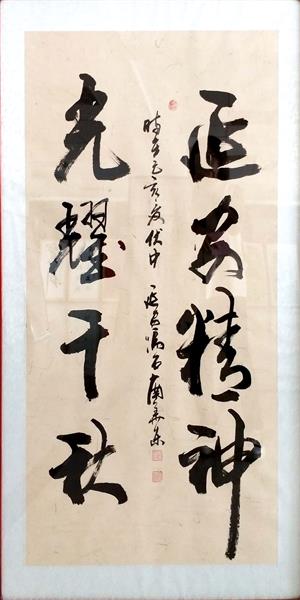 延安精神
光耀千秋
时在己亥夏伏中